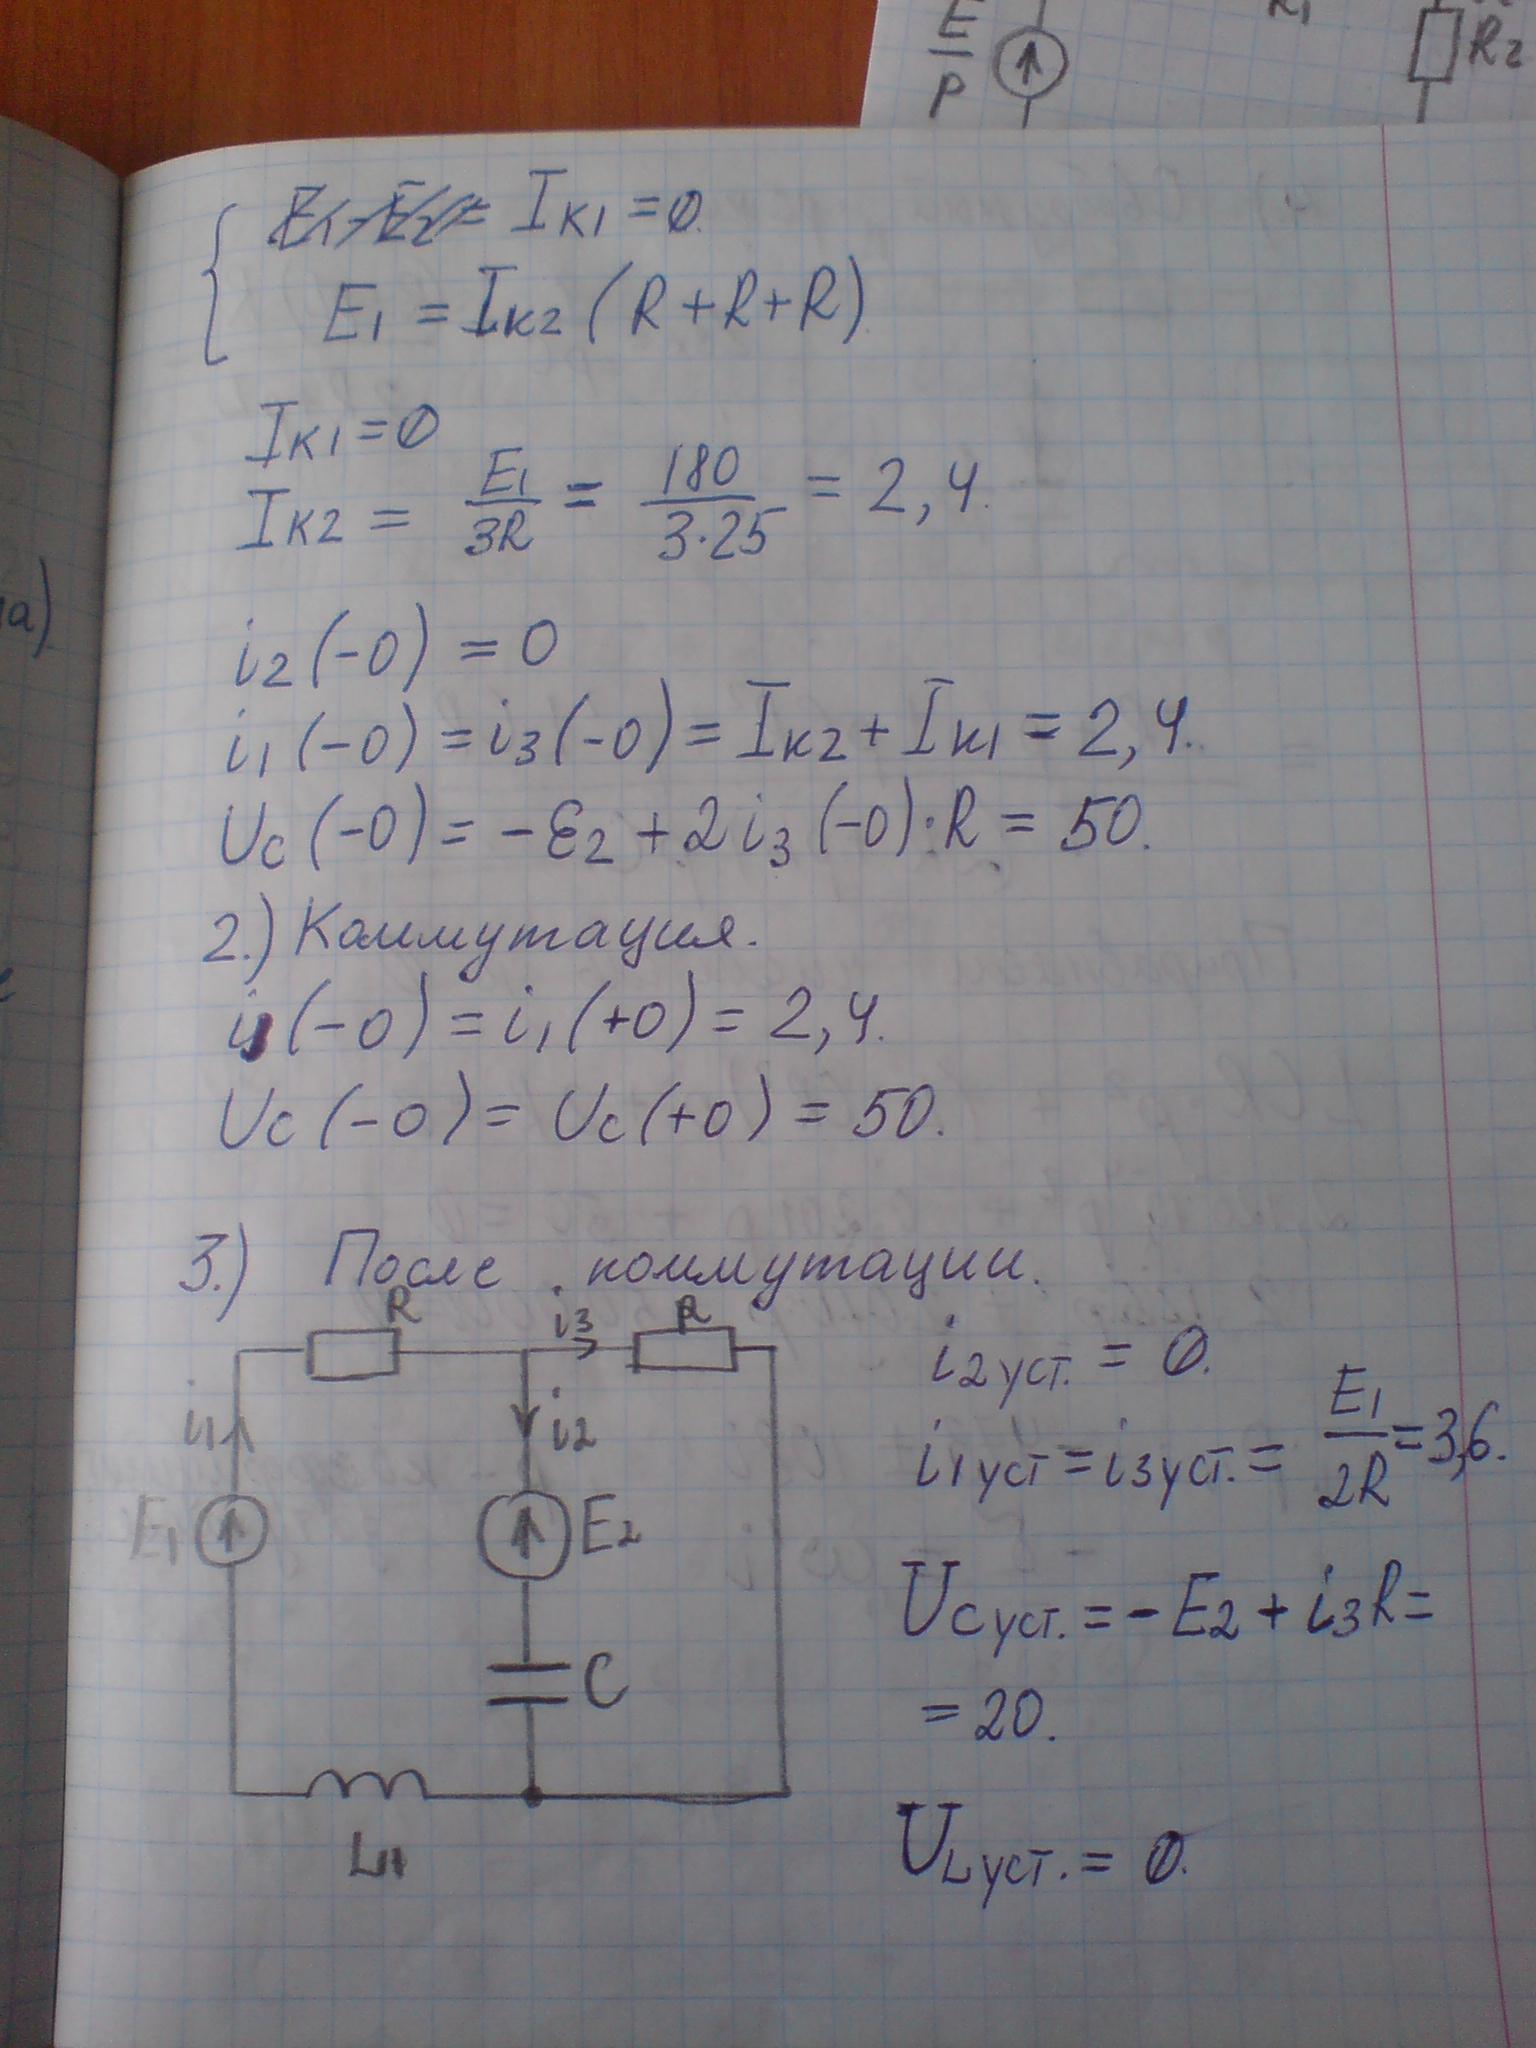 E
P
R1
R2
E1-E2= Iк1=0.
E1 = Iк2 (R+R+R)
Iк1=0
Iк2 = E1/3R = 180/3·25 = 2,4.
i2(-0) = 0
i1(-0) = i3(-0) = Iк2 + Iк1 = 2,4.
Uc(-0) = -E2 + 2i3(-0)·R = 50.
2.) Коммутация.
i1(-0) = i1(+0) = 2,4.
Uc(-0) = Uc(+0) = 50.
3.) После коммутации.
R i3 R
i2уст. = 0.
i1 i2
i1уст = i3уст. = E1/2R = 3,6.
E1 E2
Uc уст. = -E2 + i3R =
C
= 20.
UL уст. = 0.
а)